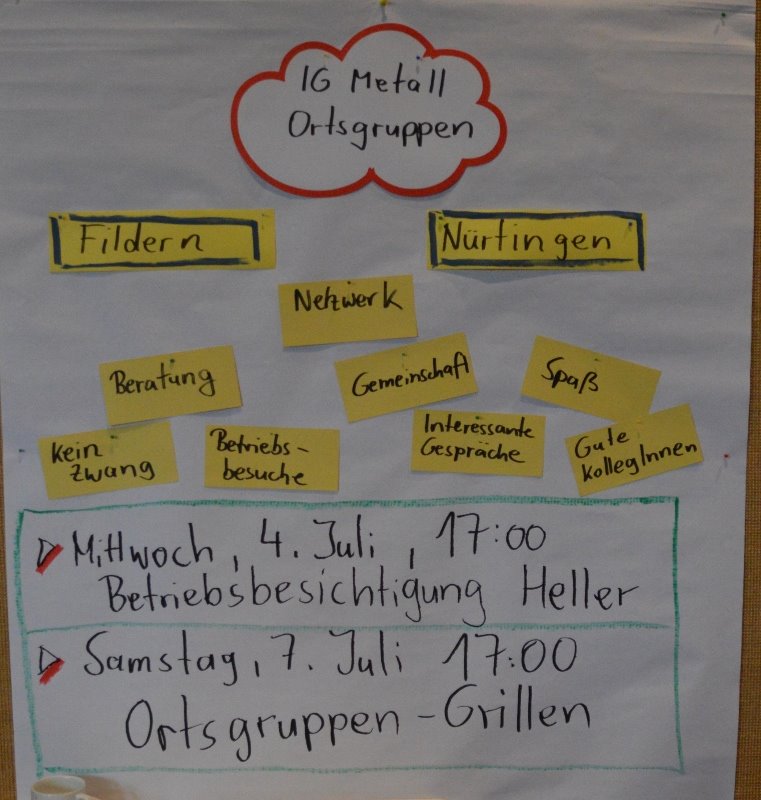 IG Metall
Ortsgruppen
Fildern
Nürtingen
Netzwerk
Beratung
Gemeinschaft
Spaß
Kein
Zwang
Betriebs-
besuche
Interessante
Gespräche
Gute
KollegInnen
Mittwoch, 4. Juli, 17:00
Betriebsbesichtigung Heller
Samstag, 7. Juli 17:00
Ortsgruppen-Grillen